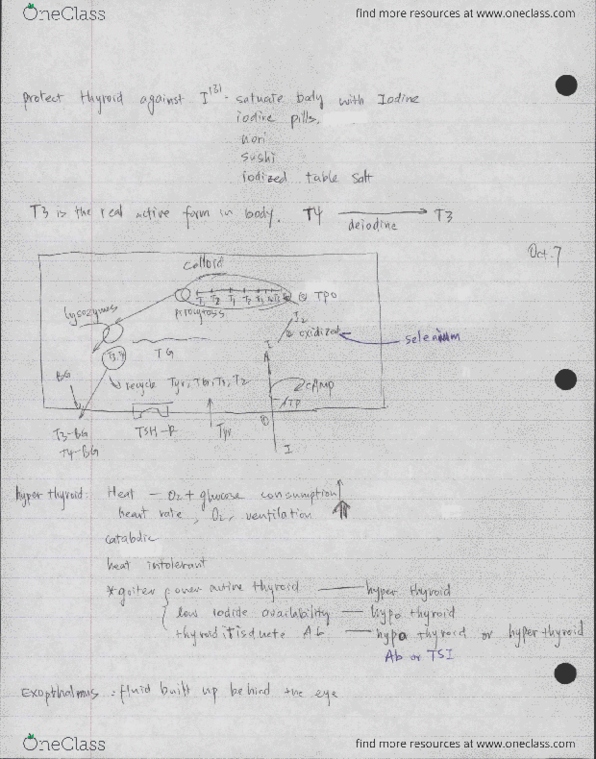 OneClass
find more resources at www.oneclass.com
protect thyroid against I131 - satuate body with Iodine
iodine pills,
nori
sushi
iodized table salt
T3 is the real active form in body. T4 → T3
deiodine
Oct. 7
colloid
T1 T2 T1 T2
TPO
lysozymes
I2
oxidized
selenium
T3,4
TG
I
BG
recycle Tyr, TG, T1, T2
cAMP
ATP
T3-BG
T4-BG
TSH-R
Tyr
I
hyper thyroid: Heat - O2 + glucose consumption ↑
heart rate, O2, ventilation
catabolic
heat intolerant
*goiter { over active thyroid — hyper thyroid
low iodide availability — hypo thyroid
thyroiditis due to Ab — hypo thyroid or hyper thyroid
Ab or TSI
Exopthalmus : fluid built up behind the eye
OneClass
find more resources at www.oneclass.com